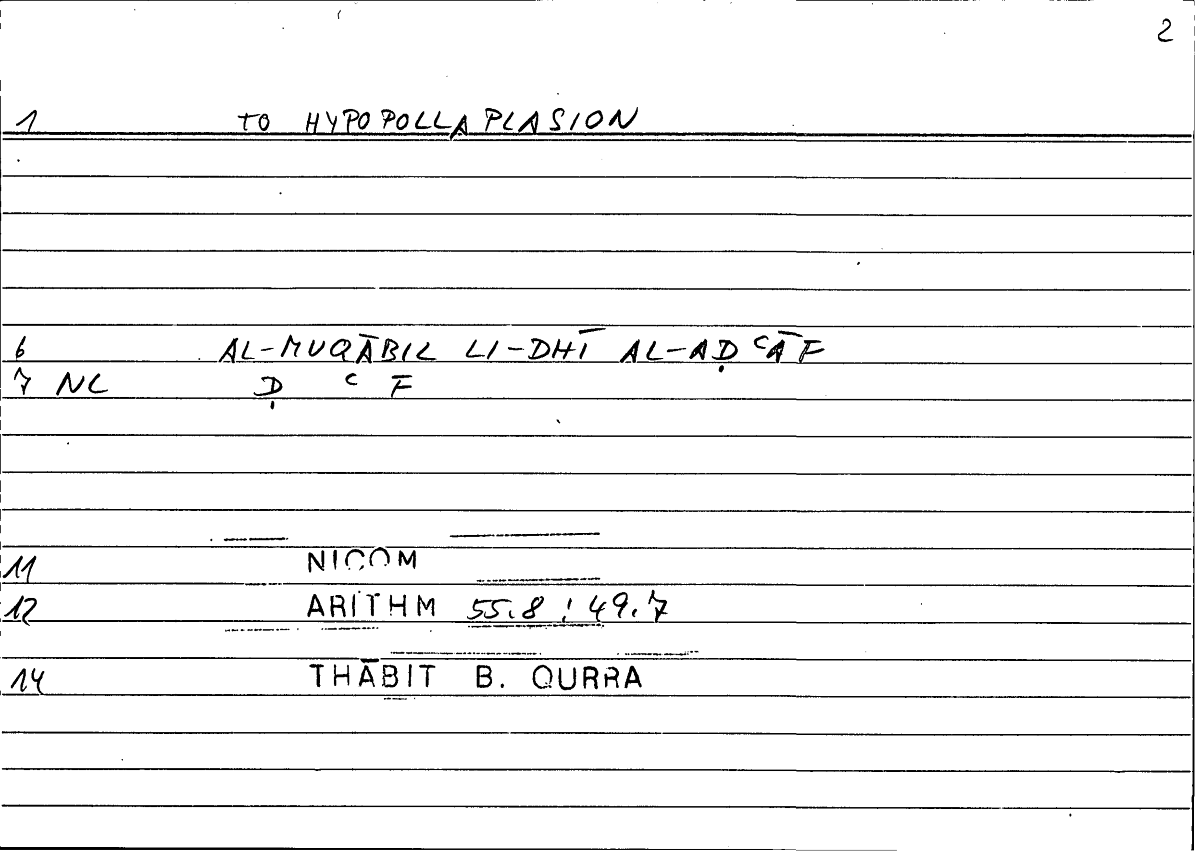 2
1 TO HYPOPOLLAPLASION
6 AL-MUQĀBIL LI-DHĪ AL-AḌ ᶜĀF
7 NL Ḍ ᶜ F
11 NICOM
12 ARITHM 55.8 : 49.7
14 THĀBIT B. QURRA